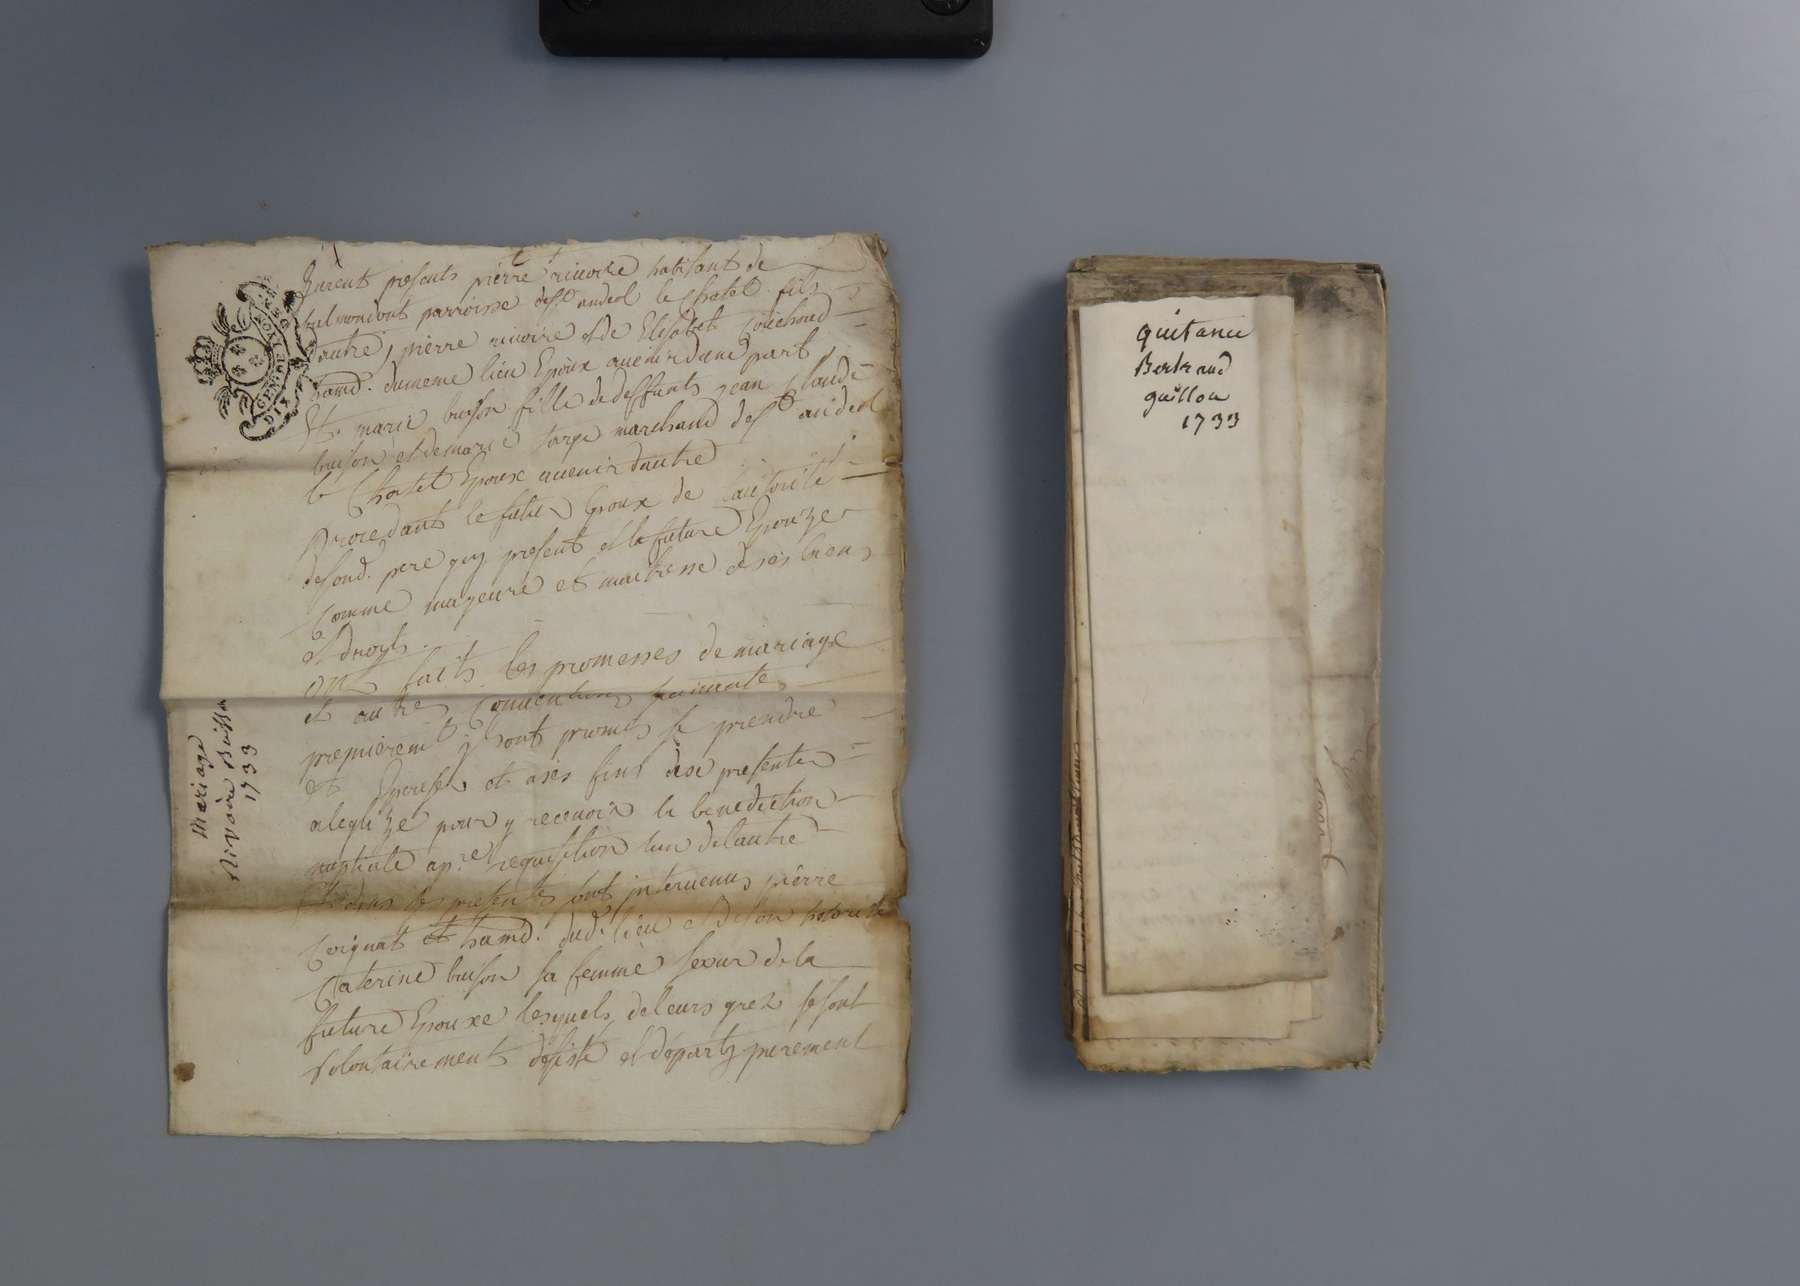 furent presents pierre rivoire habitant de
valmondont parroisse de st andeol le chatel fils
d'autre pierre rivoire et de Elisabet Couchoud
hamd. du meme lieu Epoux avenir d'une part
Et marie buison fille de deffunts jean claude
buison et de marie targe marchand de st andeol
le Chatel Epouxe avenir d'autre
procedant le futur Epoux de l'autorité
de sond. pere icy present et la future Epouze
comme mayeure et maitresse de ses biens
et droyts.
ont faits les promesses de mariage
et autres conventions suivantes
premierement y sont promis se prendre
et Epouser et a ses fins de se presenter
a l'eglize pour y recevoir la benediction
nuptiale apre requisition l'un de l'autre
Et dans ses presentes sont intervenus pierre
Coignat et hamd. dud. lieu et de son hotorité
Caterine buison sa femme seur de la
future Epouxe lesquels de leurs grez se sont
volontairement desisté et departy purement
mariage
Rivoire Buisson
1733
GEN DE LYON
quitance
Bertrand
guillon
1733